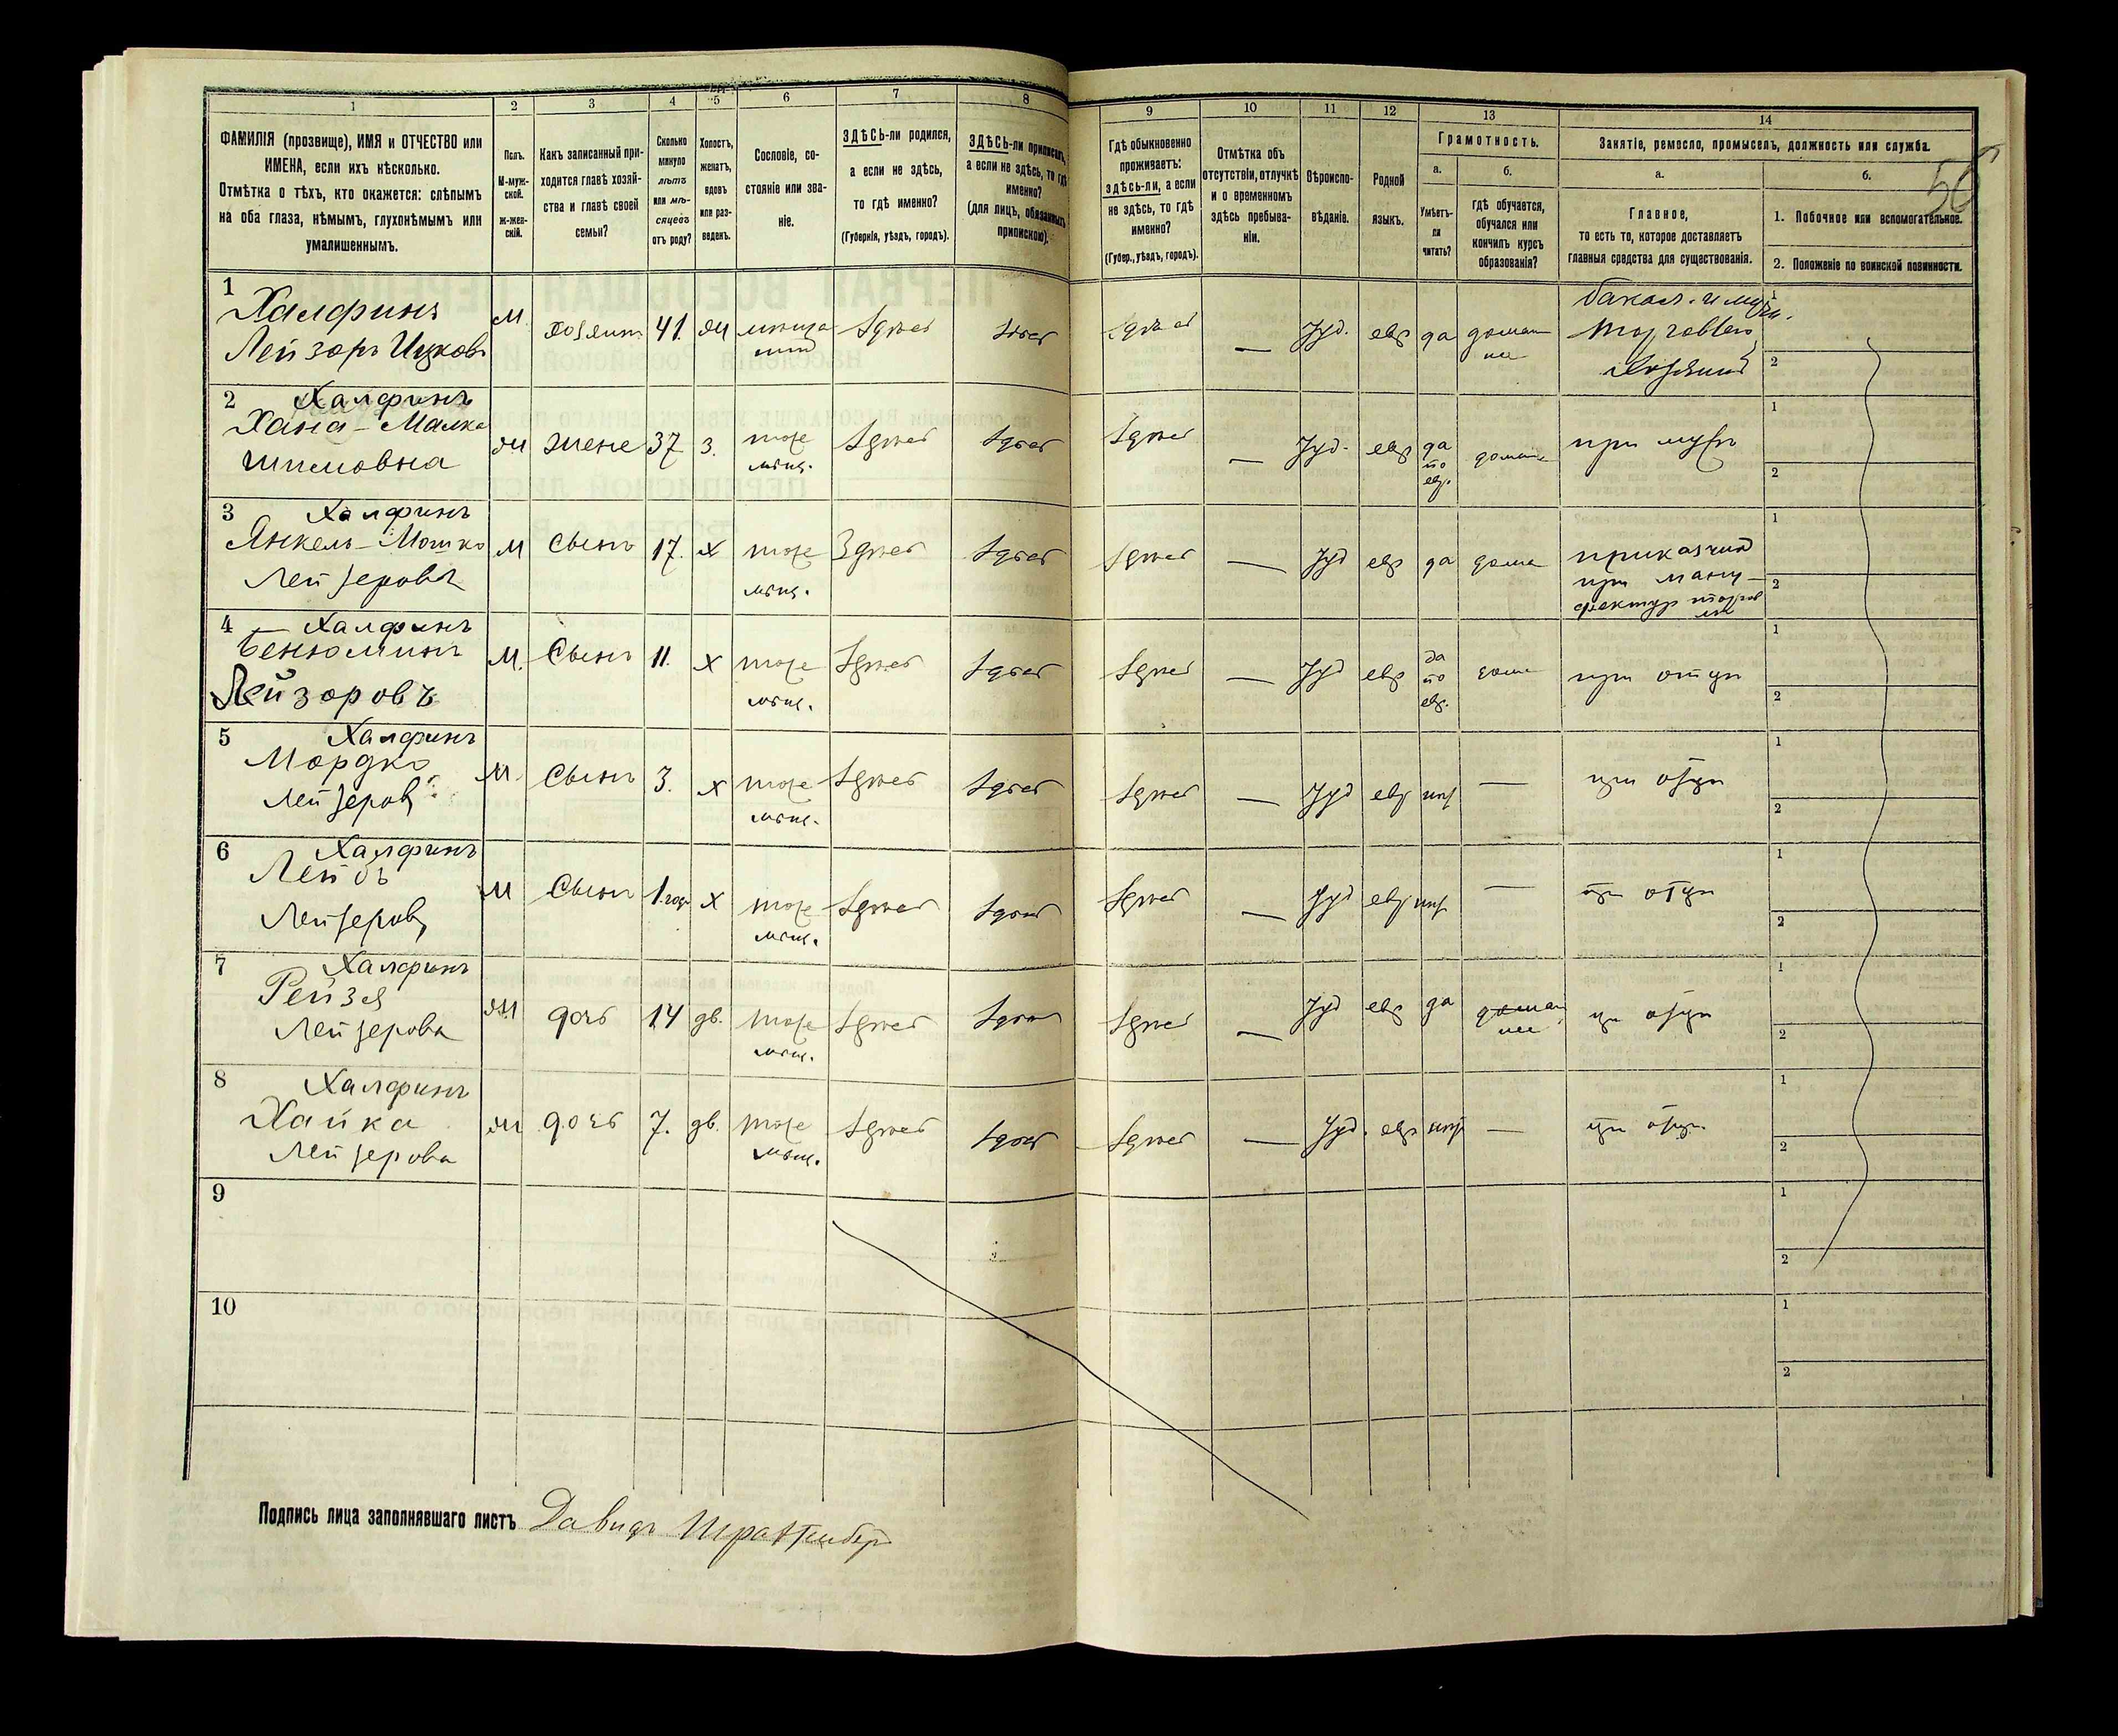 1
2
3
4
5
6
7
8
9
10
11
12
13
14
ФАМИЛІЯ (прозвище), ИМЯ и ОТЧЕСТВО или
ИМЕНА, если ихъ нѣсколько.
Отмѣтка о тѣхъ, кто окажется: слѣпымъ
на оба глаза, нѣмымъ, глухонѣмымъ или
умалишеннымъ.
Полъ.
М-муж-
ской.
ж-жен-
скій.
Какъ записанный при-
ходится главѣ хозяй-
ства и главѣ своей
семьи?
Сколько
минуло
лѣтъ
или мѣ-
сяцевъ
отъ роду?
Холостъ,
женатъ,
вдовъ
или раз-
веденъ.
Сословіе, со-
стояніе или зва-
ніе.
ЗДѢСЬ-ли родился,
а если не здѣсь,
то гдѣ именно?
(Губернія, уѣздъ, городъ).
ЗДѢСЬ-ли приписанъ,
а если не здѣсь, то гдѣ
именно?
(для лицъ, обязанныхъ
припискою).
Гдѣ обыкновенно
проживаетъ:
здѣсь-ли, а если
не здѣсь, то гдѣ
именно?
(Губер., уѣздъ, городъ).
Отмѣтка объ
отсутствіи, отлучкѣ
и о временномъ
здѣсь пребыва-
ніи.
Вѣроиспо-
вѣданіе.
Родной
языкъ.
Грамотность.
а.
Умѣетъ-
ли
читать?
б.
гдѣ обучается,
обучался или
кончилъ курсъ
образованія?
Занятіе, ремесло, промыселъ, должность или служба.
а.
Главное,
то есть то, которое доставляетъ
главныя средства для существованія.
б.
1. Побочное или вспомогательное.
2. Положеніе по воинской повинности.
1
Халфинъ
Лейзоръ Ицковъ
М
хозяинъ
41.
ж
мѣща
нинъ
Здѣсь
Здѣсь
Здѣсь
—
Іуд.
евр
да
домаш
не
бакал. и муч.
торговлею
хозяинъ
1
2
2
Халфинъ
Хана-Малка
Шимовна
ж
жена
37
з.
тоже
мѣщ.
Здѣсь
Здѣсь
Здѣсь
—
Іуд.
евр
да
по
евр.
домаш
при мужѣ
1
2
3
Халфинъ
Янкель-Мошко
Лейзеровъ
М
Сынъ
17.
х
тоже
мѣщ.
Здѣсь
Здѣсь
Здѣсь
—
Іуд
евр
да
дома
приказчик
при ману-
фактур торгов
лѣ
1
2
4
Халфинъ
Бенюминъ
Лейзоровъ
М.
Сынъ
11.
х
тоже
мѣщ.
Здѣсь
Здѣсь
Здѣсь
—
Іуд
евр
да
по
евр.
дома
при отцѣ
1
2
5
Халфинъ
Мордко
Лейзеров
М.
Сынъ
3.
х
тоже
мѣщ.
Здѣсь
Здѣсь
Здѣсь
—
Іуд
евр
нѣт
—
при отцѣ
1
2
6
Халфинъ
Лейбъ
Лейзеровъ
М
Сынъ
1 годъ
х
тоже
мѣщ.
Здѣсь
Здѣсь
Здѣсь
—
Іуд
евр
нѣт
—
при отцѣ
1
2
7
Халфинъ
Рейзя
Лейзерова
ж
дочь
14
дв.
тоже
мѣщ.
Здѣсь
Здѣсь
Здѣсь
—
Іуд
евр
да
домаш
нее
при отцѣ
1
2
8
Халфинъ
Хайка
Лейзерова
ж
дочь
7.
дв.
тоже
мѣщ.
Здѣсь
Здѣсь
Здѣсь
—
Іуд.
евр
нѣт
—
при отцѣ
1
2
9
1
2
10
1
2
Подпись лица заполнявшаго листъ Давидъ